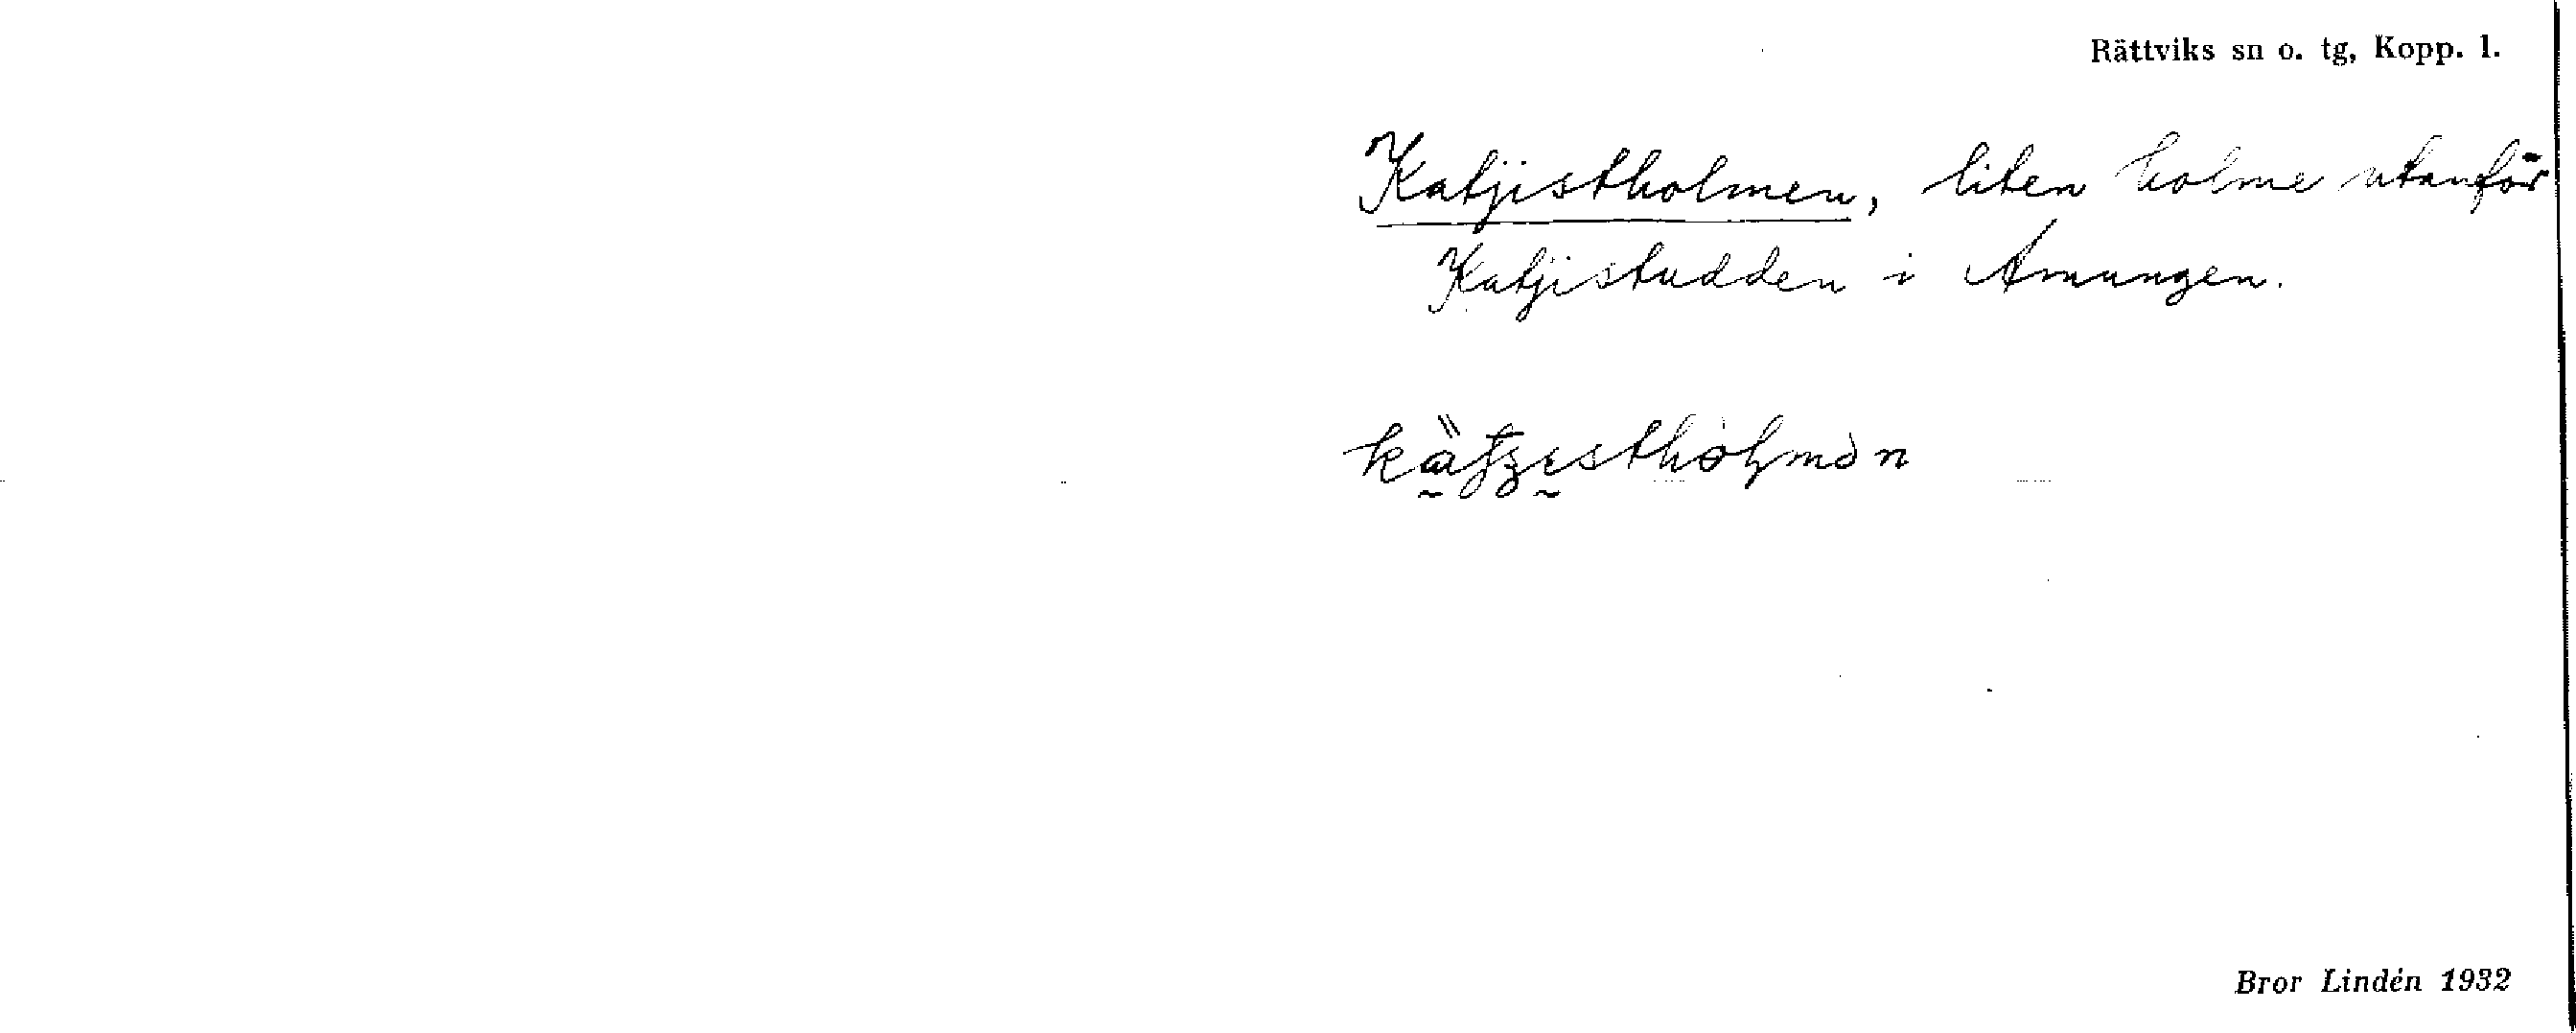 Rättviks sn o. tg, Kopp. l.
Katjistholmen, liten holme utanför
Katjistudden i Amungen.
Bror Lindén 1932